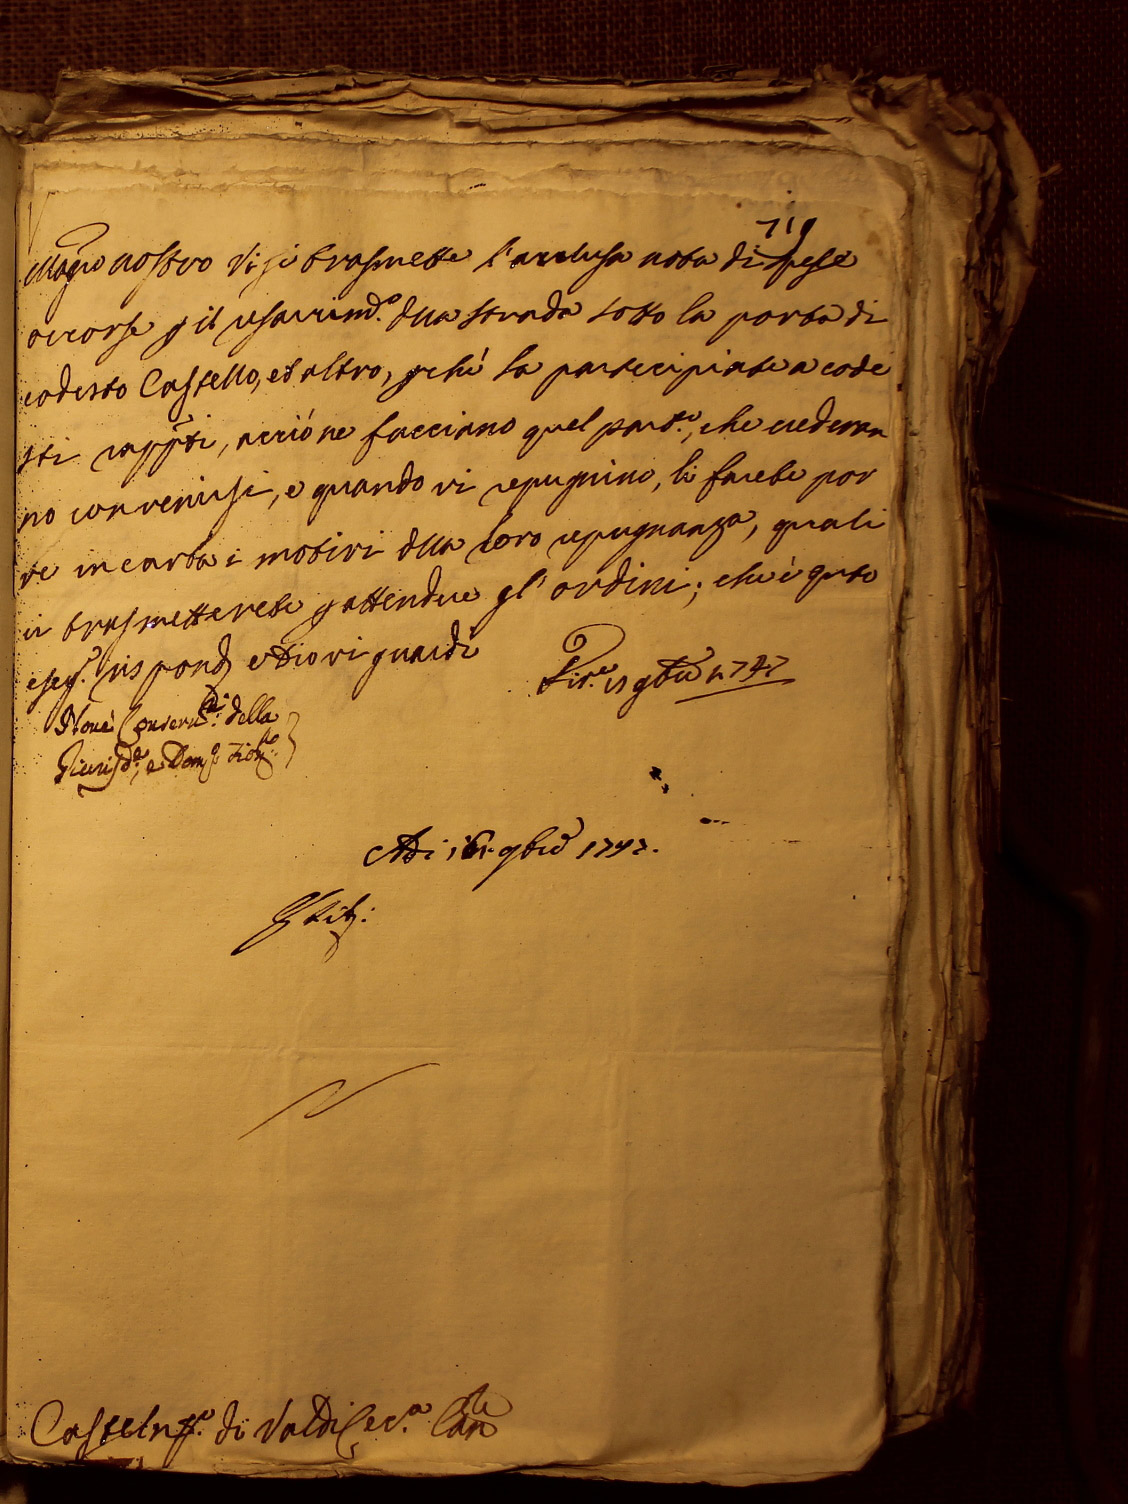 719
Magco nostro Vi si trasmette l'acclusa nota di spese
occorse p il risarcimo. dlla strada sotto la porta di
codesto Castello, et altro, pchè la partecipiate a code
sti rappnti, acciò ne facciano quel parto., che crederan
no convenirsi, e quando vi repugnino, li farete por
re in carta i motivi dlla loro repugnanza, quali
ci trasmetterete p attendere gl'ordini; che è qnto
rispond e Dio vi guardi
Fire. 15 9bre 1747
Nove Conservri. della
Giurisde., e Domo. Fiorno.
Adi 16 9bre 1747.
Castelnvo. di Val di Ceca. Canre